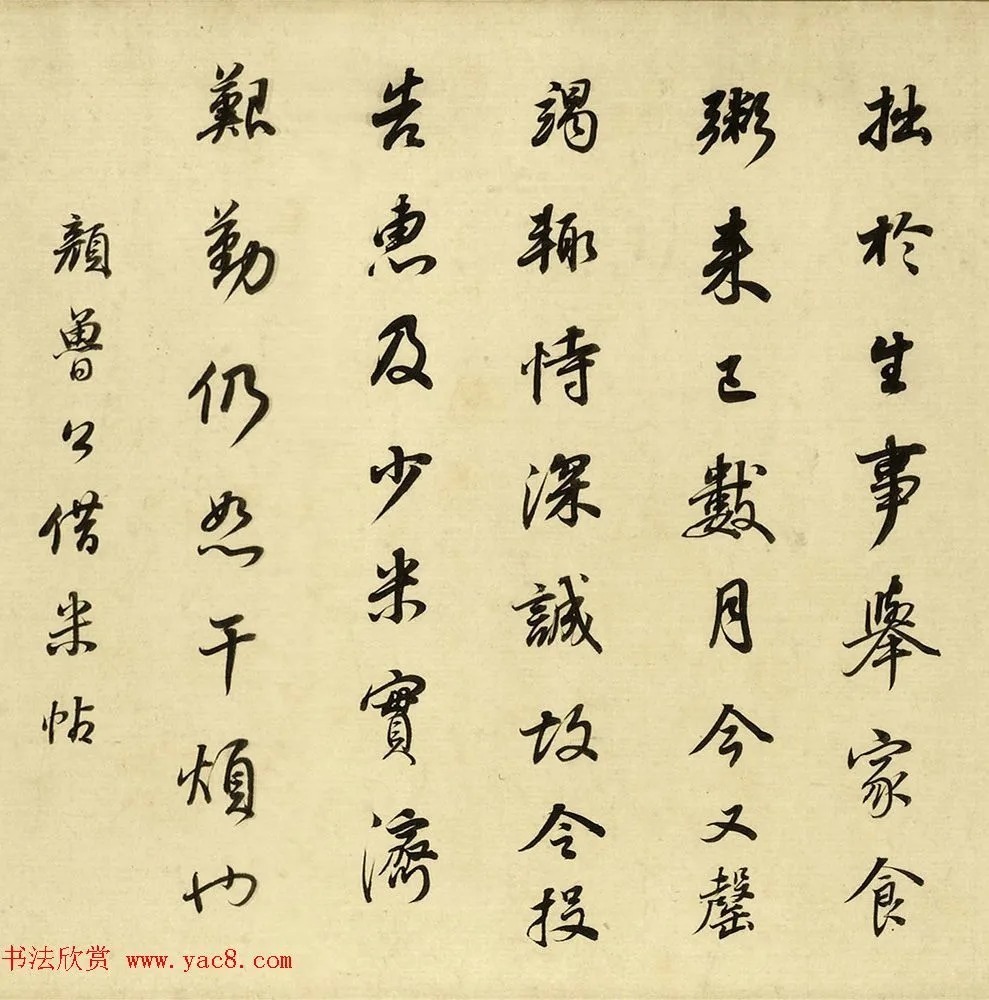 拙於生事舉家食
粥来已數月今又罄
竭輙恃深誠故令投
告惠及少米實濟
艱勤仍恕干煩也
顔魯公借米帖
书法欣赏 www.yac8.com